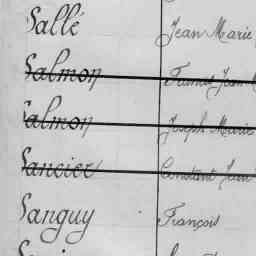 Sallé Jean Marie
Salmon Jean M
Salmon Joseph Marie
Sancier Constant Jean
Sanguy François